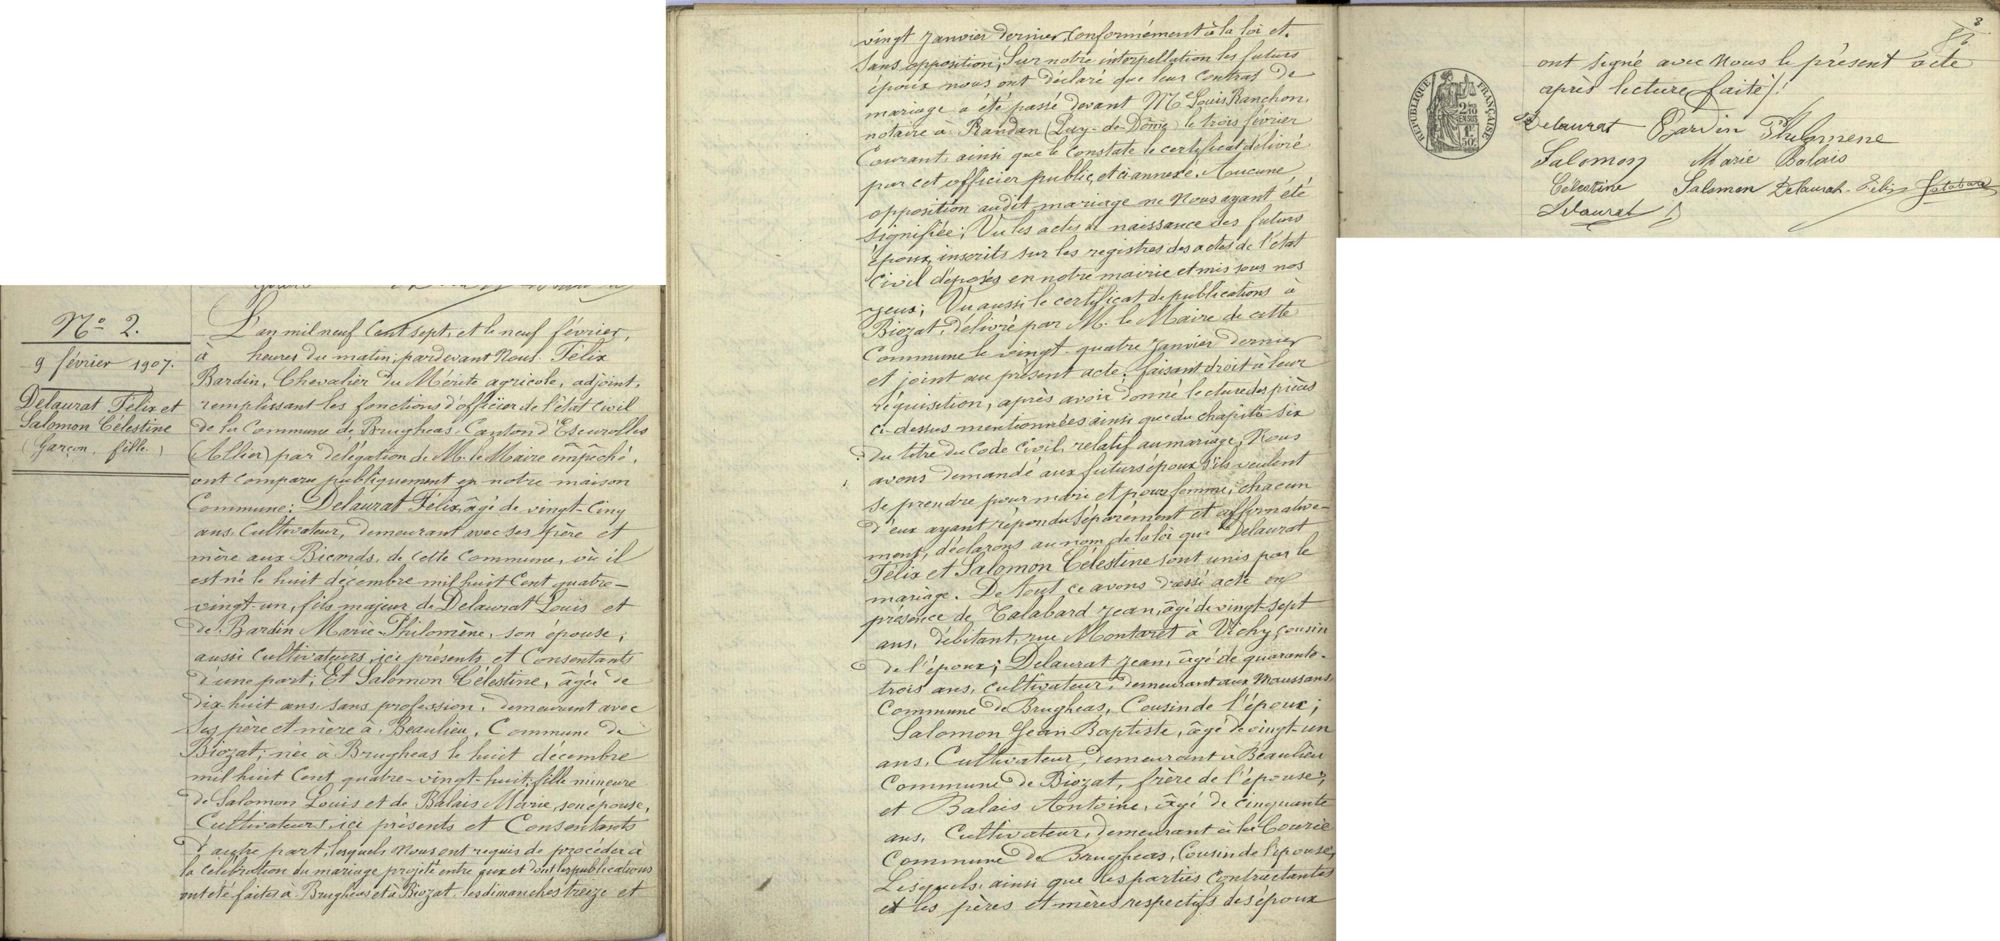 No 2.
9 février 1907.
Delaurat Félix et
Salomon Célestine
(Garçon, fille.)
L'an mil neuf cent sept, et le neuf février,
à heures du matin, pardevant Nous Félix
Bardin, Chevalier du Mérite agricole, adjoint,
remplissant les fonctions d'officier de l'état civil
de la Commune de Brugheas, Canton d'Escurolles
(Allier) par délégation de M. le Maire empêché,
ont comparu publiquement en notre maison
Commune: Delaurat Félix, âgé de vingt-cinq
ans, Cultivateur, demeurant avec ses père et
mère aux Bicards, de cette Commune, où il
est né le huit décembre mil huit cent quatre-
vingt-un, fils majeur de Delaurat Louis et
de Bardin Marie-Philomène, son épouse,
aussi Cultivateurs, ici présents et Consentants
d'une part; Et Salomon Célestine, âgée de
dix-huit ans, sans profession, demeurant avec
ses père et mère à Beaulieu, Commune de
Biozat, née à Brugheas le huit décembre
mil huit Cent quatre-vingt-huit, fille mineure
de Salomon Louis et de Balais Marie, son épouse,
Cultivateurs, ici présents et Consentants
d'autre part, lesquels Nous ont requis de procéder à
la célébration du mariage projeté entre eux et dont les publications
ont été faites à Brugheas et à Biozat, les dimanches treize et
vingt Janvier dernier, Conformément à la loi et
sans opposition; Sur notre interpellation les futurs
époux nous ont déclaré que leur Contras de
mariage a été passé devant Me Louis Ranchon,
notaire à Randan (Puy-de-Dôme) le trois février
Courant, ainsi que le Constate le certificat délivré
par cet officier public, et ci annexé. Aucune
opposition audit mariage ne Nous ayant été
signifiée; Vu les actes de naissance des futurs
époux, inscrits sur les registres des actes de l'état
Civil déposés en notre mairie et mis sous nos
yeux; Vu aussi le certificat de publications à
Biozat, délivré par M. le Maire de cette
Commune le vingt-quatre Janvier dernier
et joint au présent acte, faisant droit à leur
réquisition, après avoir donné lecture des pièces
ci-dessus mentionnées ainsi que du chapitre six
du titre du Code Civil, relatif au mariage, Nous
avons demandé aux futurs époux s'ils veulent
se prendre pour mari et pour femme, chacun
d'eux ayant répondu séparément et affirmative-
ment, déclarons au nom de la loi que Delaurat
Félix et Salomon Célestine sont unis par le
mariage. De tout ce avons dressé acte en
présence de Talabard Jean, âgé de vingt-sept
ans, débitant, rue Montaret à Vichy, cousin
de l'époux; Delaurat Jean, âgé de quarante-
trois ans, cultivateur, demeurant aux Maussans,
Commune de Brugheas, Cousin de l'époux;
Salomon Jean Baptiste, âgé de vingt-un
ans, Cultivateur, demeurant à Beaulieu
Commune de Biozat, frère de l'épouse;
et Balais Antoine, âgé de cinquante
ans, Cultivateur, demeurant à la Courie
Commune de Brugheas, Cousin de l'épouse,
Lesquels, ainsi que les parties Contractantes
et les pères et mères respectifs des époux
ont signé avec Nous le présent acte
après lecture faite /.
RÉPUBLIQUE FRANÇAISE
2/10 EN SUS
1F 50c
Delaurat Bardin Philomène
Salomon Marie Balais
Célestine Salomon Delaurat Félix Talabard
Delaurat J